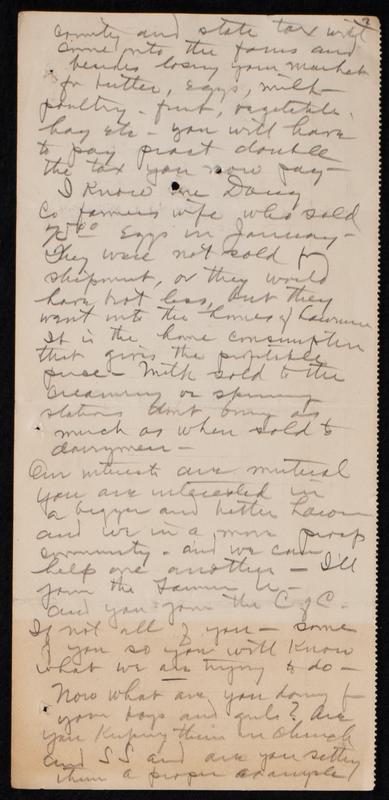 county and state tax will
come onto the farms and
besides losing your market
for butter, eggs, milk
poultry - fruit, vegetable,
hay etc - you will have
to pay pract double
the tax you now pay -
I know one Doug
Co farmers wife who sold
Eggs in January -
They were not sold for
shipment, or they would
have brot less, but they
went into the homes of Lawrence
It is the home consumption
that gives the profitible
price - Milk sold to the
creamery or
stations dont bring as
much as when sold to
dairymen -
Our interests are mutual
you are interested in
a bigger and better
and we in a more prosp
community - and we can
help one another - I'll
join the Farmer U -
and you join the C of C -
If not all of you - some
of you so you will know
what we are trying to do -
Now what are you doing f
your boys and girls? Are
you keeping them in Church
and SS and are you setting
them a proper example